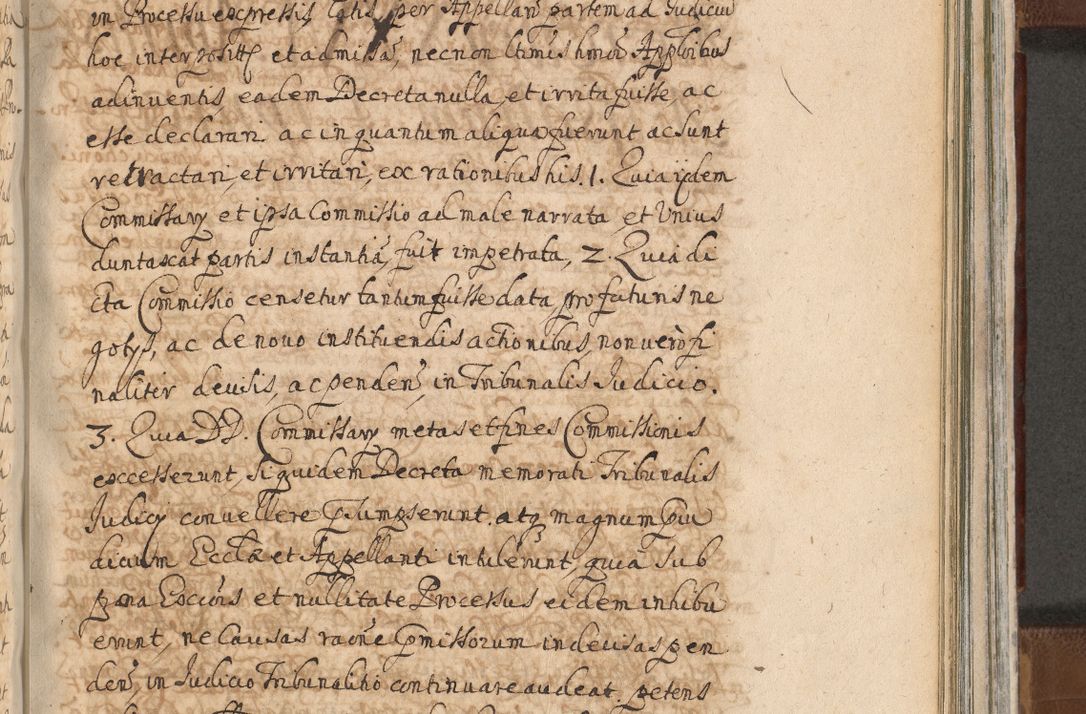 in Processu expressis latis, per Appellan partem ad Judiciu
hoc interposittę et admissā, necnon ltimis hmōi Applōibus
adinventis eadem Decreta nulla, et irrita fuisse, ac
esse declarari ac in quantum aliqua fuerunt ac sunt
retractari, et irritari, ex rationibus his. 1. Quia ijdem
Commissarÿ et ipsa Commissio ad male narrata et Unius
duntaxat partis instantiā, fuit impetrata, 2. Quia di
cta Commissio censetur tantum fuisse data pro futuris ne
gotÿs, ac de novo instituendis actionibus, non verò fi
naliter devisis, ac penden, in Tribunalis Judicio.
3. Quia DD. Commissarÿ metas et fines Commissionis
excesserunt, siquidem Decreta memorati Tribunalis
Judicÿ convellere psumpserunt. atq magnum pju
dicium Ecclæ et Appellanti intulerunt, quia sub
pœna Excōis et nullitate Processus eidem inhibu
erunt, ne Causas raōne pmissorum indevisas pen
den, in Judicio Tribunalitio continuare audeat. petens